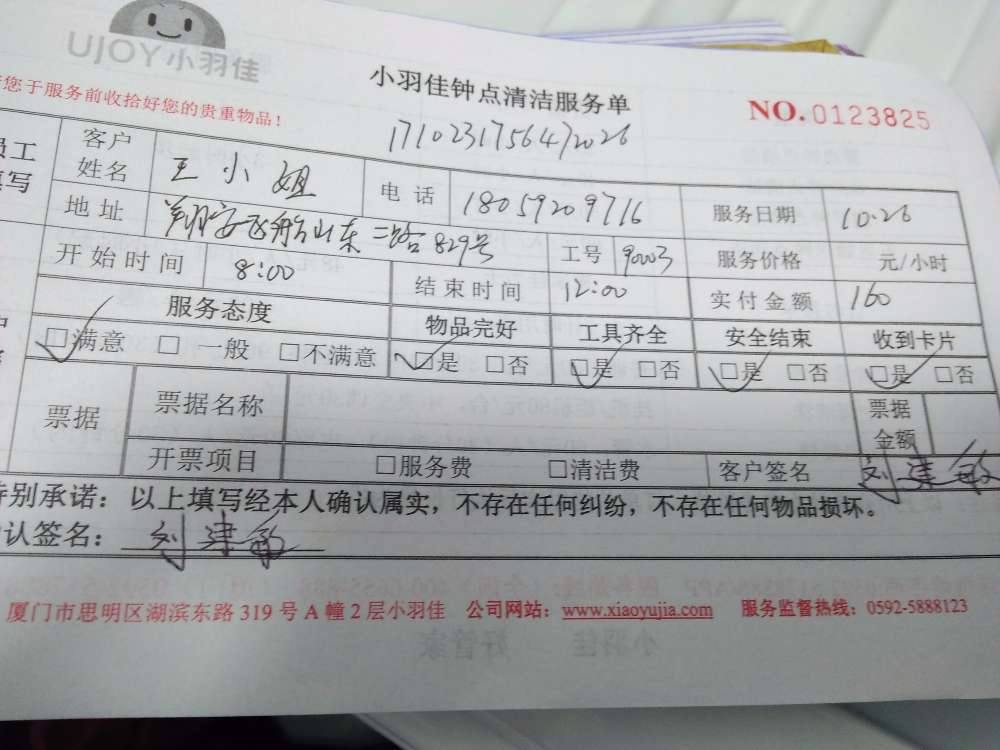 UJOY小羽佳
小羽佳钟点清洁服务单
NO.0123825
您于服务前收拾好您的贵重物品！
1710231756472026
员工
填写
客户姓名 王小姐 电话 18059209716 服务日期 10.26
地址 翔安飞船山东二路829号 工号 90003 服务价格 元/小时
开始时间 8:00 结束时间 12:00 实付金额 160
服务态度 物品完好 工具齐全 安全结束 收到卡片
☑满意 □一般 □不满意 ☑是 □否 ☑是 □否 ☑是 □否 ☑是 □否
票据 票据名称 票据金额
开票项目 □服务费 □清洁费 客户签名 刘建敏
特别承诺：以上填写经本人确认属实，不存在任何纠纷，不存在任何物品损坏。
认签名：刘建敏
厦门市思明区湖滨东路 319 号 A 幢 2 层小羽佳 公司网站：www.xiaoyujia.com 服务监督热线：0592-5888123